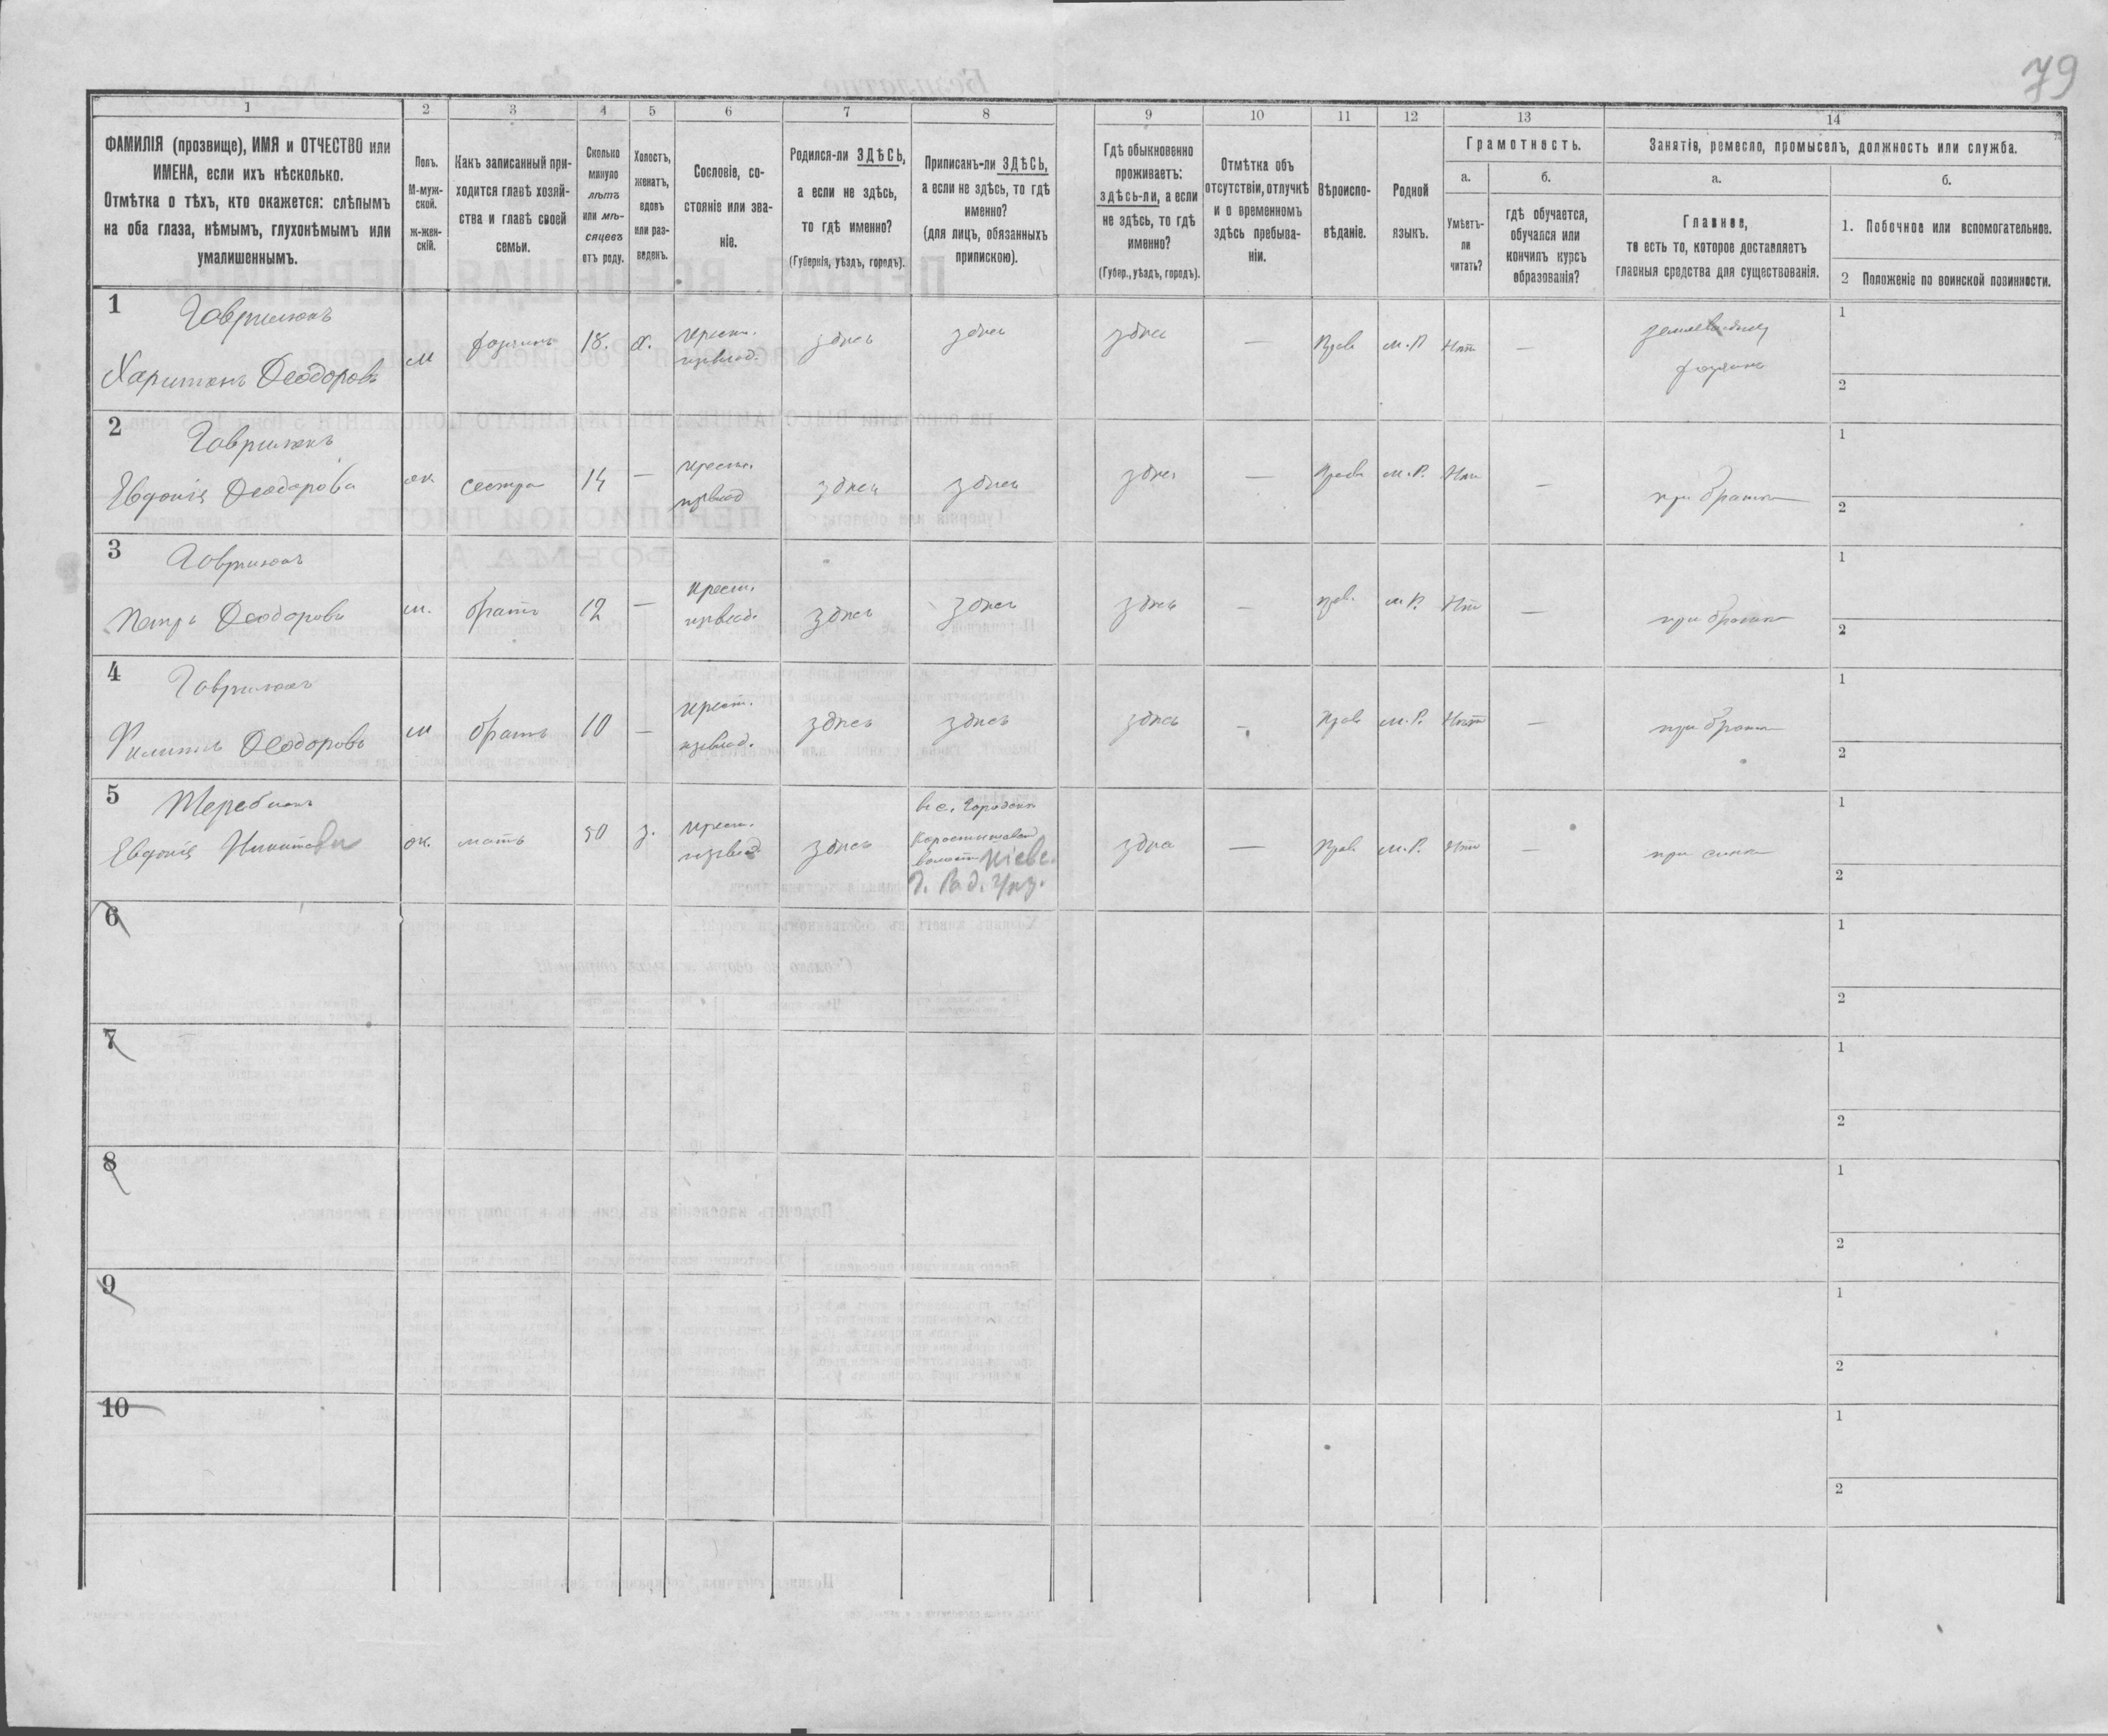 79
1 2 3 4 5 6 7 8 9 10 11 12 13 14
ФАМИЛІЯ (прозвище), ИМЯ и ОТЧЕСТВО или
ИМЕНА, если ихъ нѣсколько.
Отмѣтка о тѣхъ, кто окажется: слѣпымъ
на оба глаза, нѣмымъ, глухонѣмымъ или
умалишеннымъ.
Полъ.
М-муж-
ской.
ж-жен-
скій.
Какъ записанный при-
ходится главѣ хозяй-
ства и главѣ своей
семьи.
Сколько
минуло
лѣтъ
или мѣ-
сяцевъ
отъ роду.
Холостъ,
женатъ,
вдовъ
или раз-
веденъ.
Сословіе, со-
стояніе или зва-
ніе.
Родился-ли ЗДѢСЬ,
а если не здѣсь,
то гдѣ именно?
(Губернія, уѣздъ, городъ).
Приписанъ-ли ЗДѢСЬ,
а если не здѣсь, то гдѣ
именно?
(для лицъ, обязанныхъ
припискою).
Гдѣ обыкновенно
проживаетъ:
здѣсь-ли, а если
не здѣсь, то гдѣ
именно?
(Губер., уѣздъ, городъ).
Отмѣтка объ
отсутствіи, отлучкѣ
и о временномъ
здѣсь пребыва-
ніи.
Вѣроиспо-
вѣданіе.
Родной
языкъ.
Грамотность.
а.
Умѣетъ-
ли
читать?
б.
гдѣ обучается,
обучался или
кончилъ курсъ
образованія?
Занятіе, ремесло, промыселъ, должность или служба.
а.
Главное,
то есть то, которое доставляетъ
главныя средства для существованія.
б.
1. Побочное или вспомогательное.
2 Положеніе по воинской повинности.
1 Гаврилюкъ
Харитонъ Ѳеодоровъ
м хозяинъ 18. х. крест. здѣсь здѣсь здѣсь — Прав м.Р Нѣт —
хозяинъ
1
2
2 Гаврилюкъ
Евдокія Ѳеодорова
ж. сестра 14 — крест. здѣсь здѣсь здѣсь — Прав м.Р. Нѣт —
при братѣ
1
2
3 Гаврилюкъ
Петръ Ѳеодоровъ
м. братъ 12 — крест. здѣсь здѣсь здѣсь — прав. м Р. Нѣт —
при братѣ
1
2
4 Гаврилюкъ
Филиппъ Ѳеодоровъ
м братъ 10 — крест. здѣсь здѣсь здѣсь — Прав м.Р. Нѣтъ —
при братѣ
1
2
5
Евдокія Никитова
ж. мать 50 крест. здѣсь
Коростишевской
волости Кіевс.
г. Рад. Уѣз.
здѣсь — Прав. м.Р. Нѣт —
при сынѣ
1
2
6
1
2
7
1
2
8
1
2
9
1
2
10
1
2